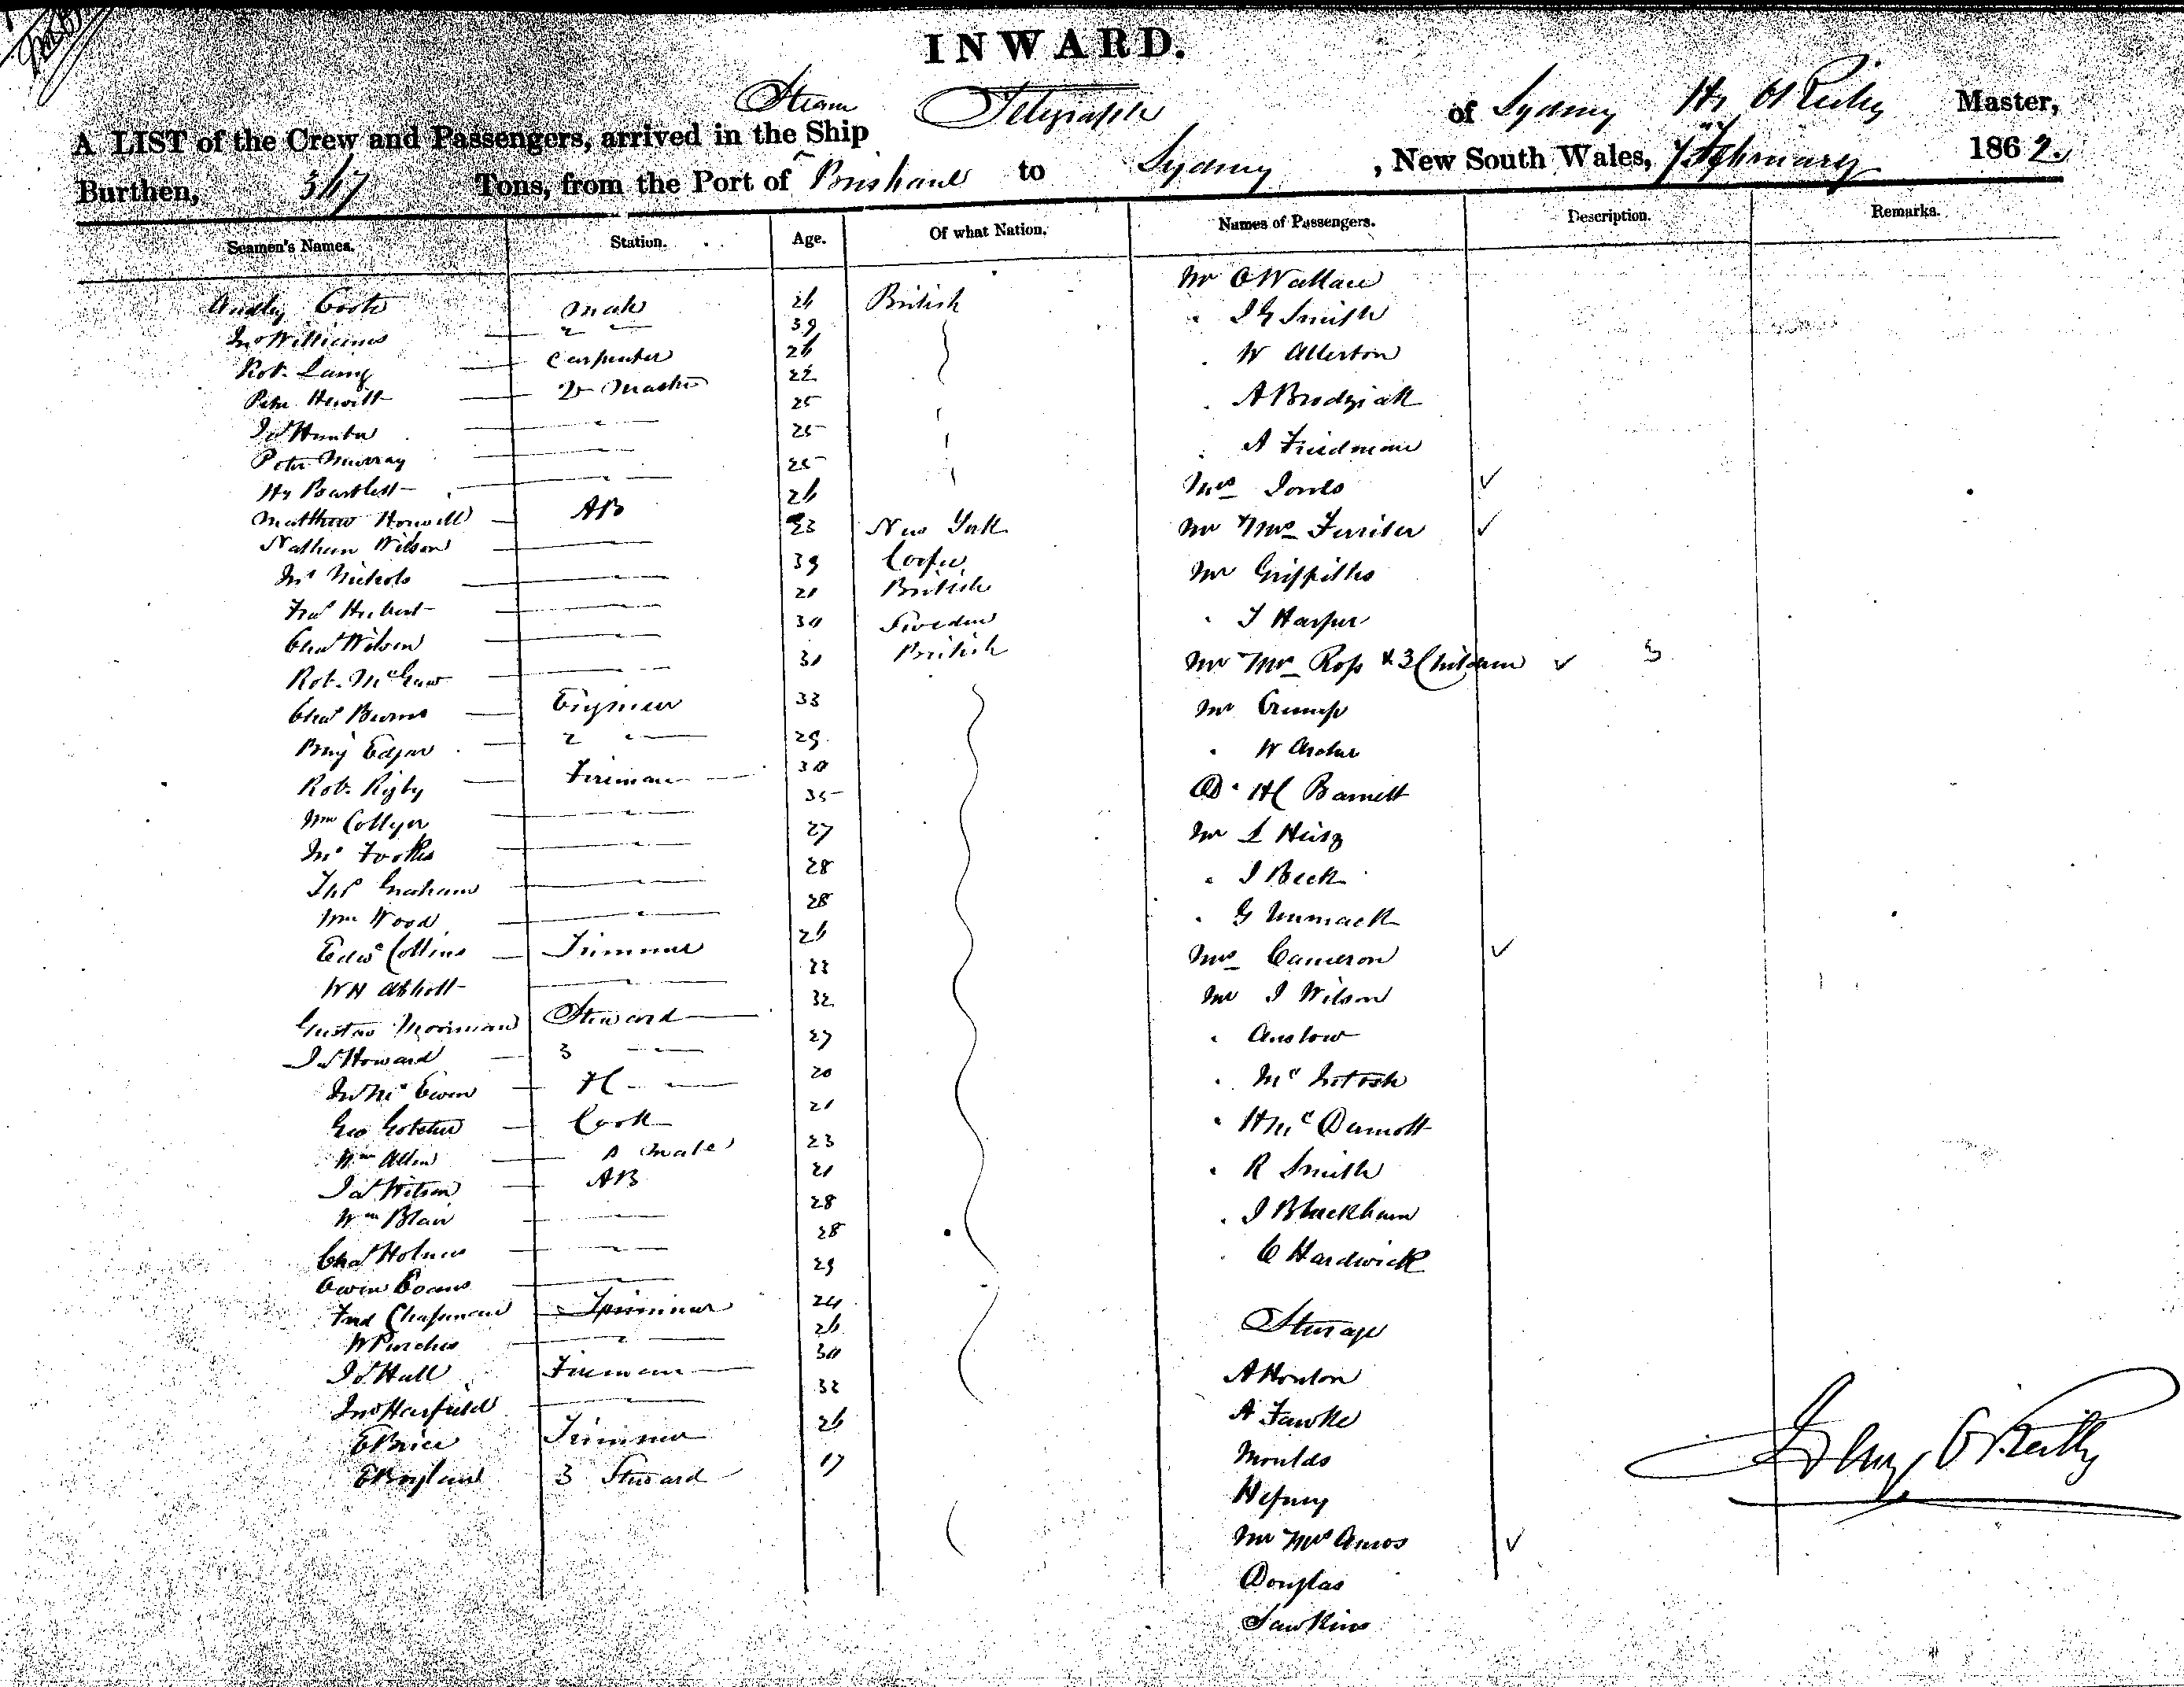 INWARD.
A LIST of the Crew and Passengers, arrived in the Steam Ship Telegraph of Sydney Hy O'Reilly Master,
Burthen, 367 Tons, from the Port of Brisbane to Sydney, New South Wales, 7 February 1862.
Seamen's Names. Station. Age. Of what Nation. Names of Passengers. Description. Remarks.
Mr O Wallace
Audley Coote Mate 26 British
" J G Smith
Jno Williams 2 " 39
Robt Laing Carpenter 26
" W Allerton
Peter Hewitt 22
" A Brodziak
Jas Hunter " 25
Peter Murray " 25
" A Friedman
Hy Bartlett " 25
Mrs Jones ✓
Matthew Howell AB 26
Nathan Wilson " 23 New York
Mr Mrs Ferriter ✓
Jno Nichols " 39 Corfu
Mr Griffiths
Fras Hubert " 21 British
" T Harper
Chas Wilson " 30 Sweden
Robt McGaw " 31 British
Mr Mrs Ross & 3 Children ✓ 3
Chas Burns Engineer 33
Mr Crump
Benj Edgar 2 " 29
" W Archer
Robt Rigby Fireman 30
Dr H C Barnett
Wm Collyer " 35
Mr L
Jno Fookes " 27
" J Beck
Thos Graham " 28
" G Unmack
Wm Wood " 28
Mrs Cameron ✓
Edwd Collins Trimmer 26
W H Abbott " 22
Mr J Wilson
Gustav Moorman Steward 32
" Anslow
Jas Howard 3 " 27
" McIntosh
Jno McEwen 20
Geo Gotcher Cook 21
" H McDermott
Wm Allen " mate 23
" R Smith
Jas Wilson AB 21
Wm Blair " 28
" J Blackham
Chas Holmes " 28
" C Hardwick
Owen Evans " 29
Fred Chapman Trimmer 24
Steerage
W Purches " 26
A Horton
Jas Hall Fireman 30
Jno Harfield " 32
A Fawke
E Brice Trimmer 26
Moulds
E Boyland 3 Steward 17
Hefney
Mr Mrs Amos ✓
Douglas
Sawkins
Henry O'Reilly